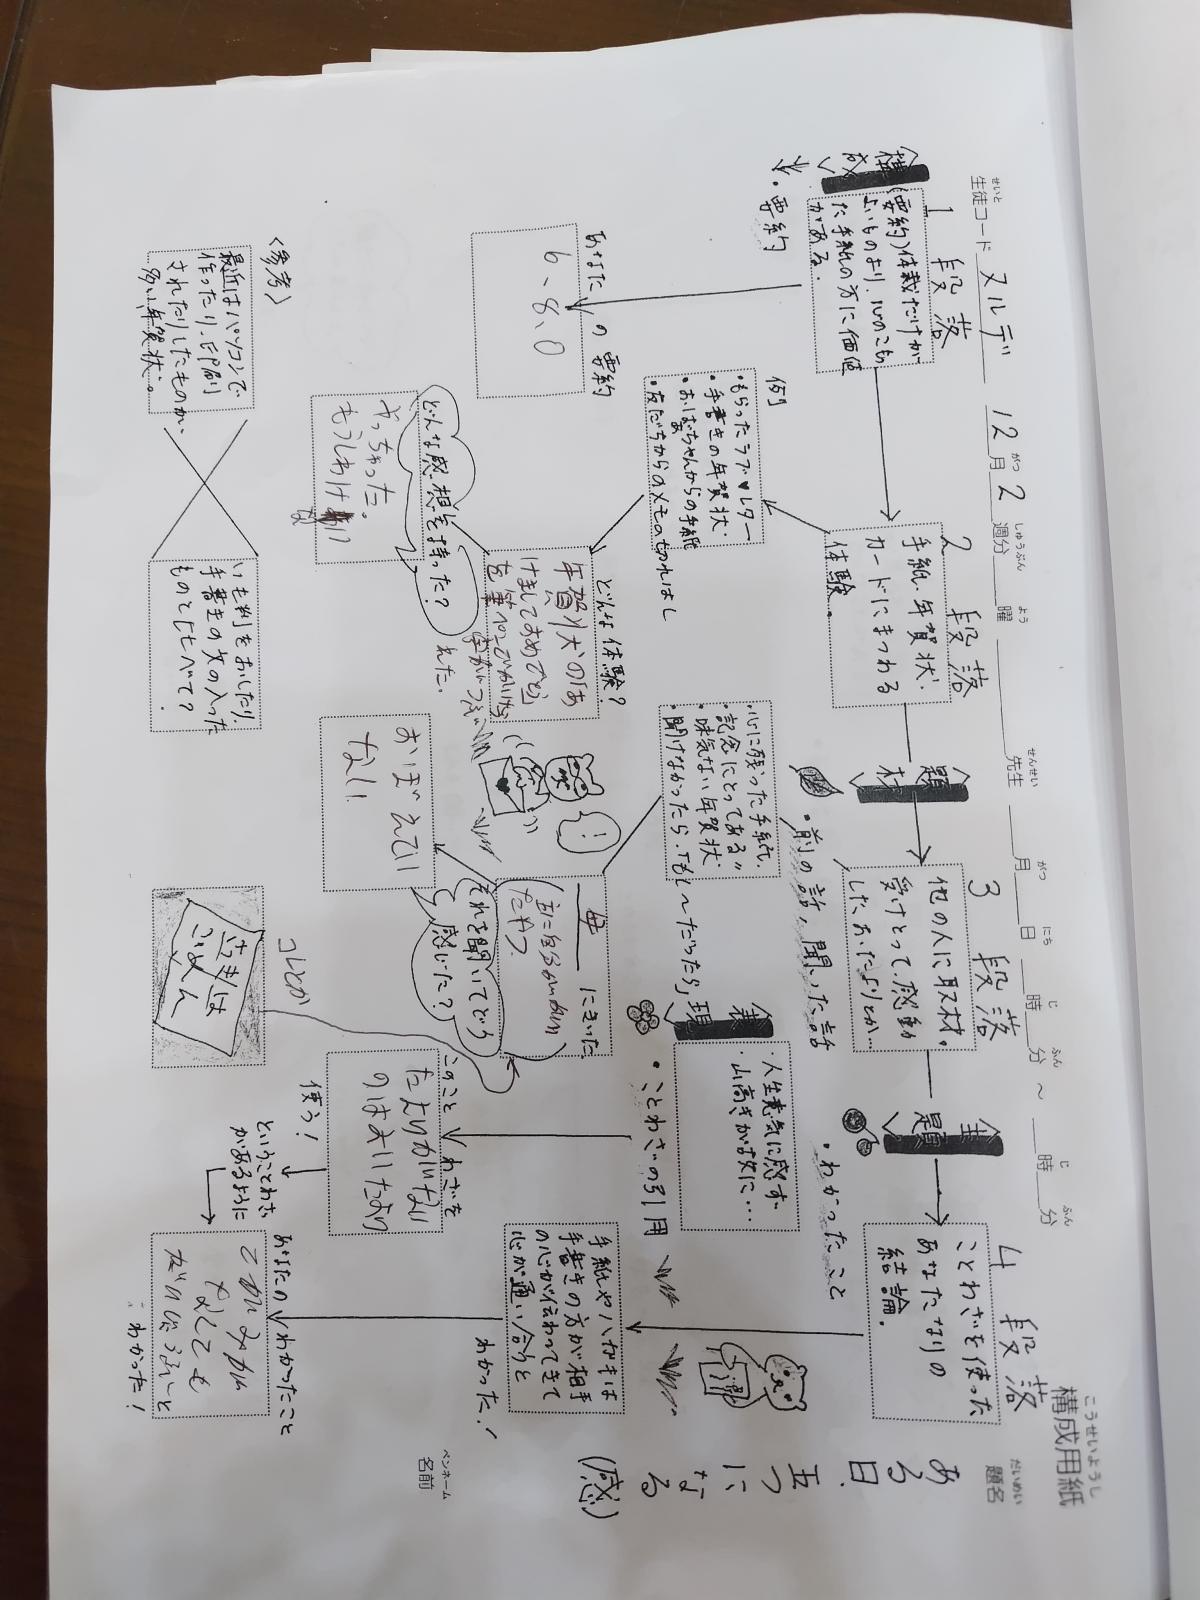 構成用紙
こうせいようし
生徒コード
せいと
ヌルデ
12月2週分
がつ
しゅうぶん
曜
よう
先生
せんせい
月
がつ
日
にち
時
じ
分
ふん
～
時
じ
分
ふん
題名
だいめい
ある日、
五つに
なる
(感)
ペンネーム
名前
構成
・要約
1段落
(要約)体裁だけが
よいものより、心のこもっ
た手紙の方に価値
がある。
あなたの要約
6、8、0
2段落
手紙・年賀状・
カードにまつわる
体験。
例
・もらったラブ♥レター
・手書きの年賀状・
・おばあちゃんからの手紙
・友だちからのメモの切れはし
どんな体験?
年賀状の「あ
けましておめでとう」
を
れた。
どんな感想を持った?
やっちゃった。
もうしわけ
〈参考〉
最近はパソコンで
作ったり、印刷
されたりしたものが
多い年賀状。
いも判をおしたり、
手書きの文の入った
ものとくらべて?
題材
・前の話、聞いた話
3段落
他の人に取材。
受けとって感動
したおたよりとか…
・心に残った手紙。
・記念にとってある〃
・味気ない年賀状
・聞けなかったら、「もし～だったら」
母にきいた
それを聞いてどう
感じた?
おぼえてい
ない
コレとか
さっきは
ごめん
表現
・ことわざの引用
・人生意気に感ず。
・山高きが故に…
このことわざを
使う!
たよりがない
のはよいたより
ということわざ
があるように
主題
・わかったこと
4段落
ことわざを使った
あなたなりの
結論。
手紙やハガキは
手書きの方が相手
の心が伝わってきて
心が通い合うと
わかった!
あなたのわかったこと
てがみが
なくても
だいじょうぶと
わかった!